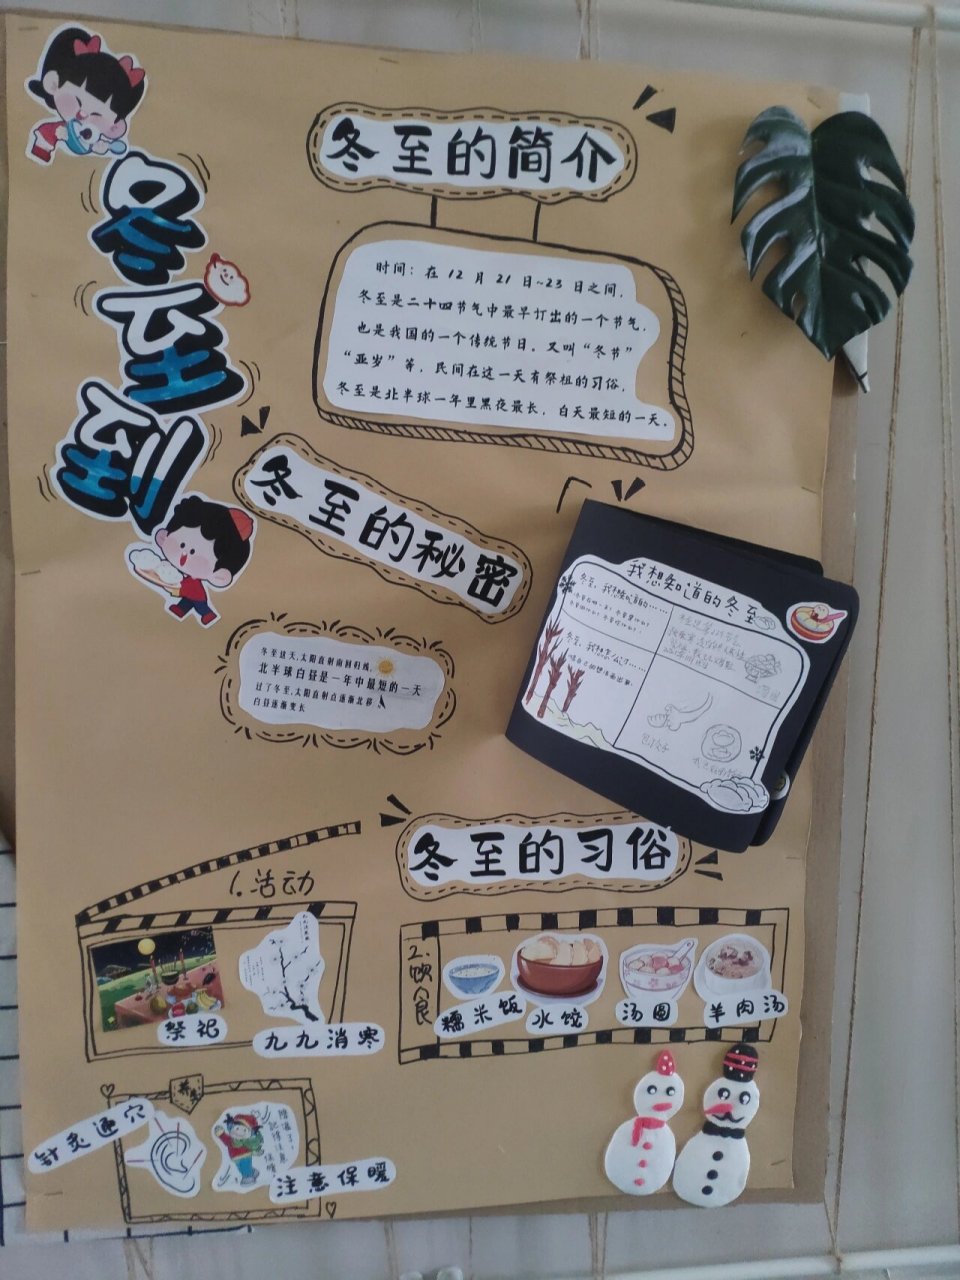 冬至到
冬至的简介
时间：在 12 月 21 日~23 日之间，
冬至是二十四节气中最早订出的一个节气，
也是我国的一个传统节日。又叫“冬节”
“亚岁”等，民间在这一天有祭祖的习俗，
冬至是北半球一年里黑夜最长，白天最短的一天。
冬至的秘密
冬至这天，太阳直射南回归线，
北半球白昼是一年中最短的一天
过了冬至，太阳直射点逐渐北移，
白昼逐渐变长
我想知道的冬至
冬至，我想知道的……
冬至，我想怎么过……
包饺子
冬至的习俗
1.活动
祭祀
九九消寒
2.饮食
糯米饭
水饺
汤圆
羊肉汤
养生
针灸通穴
降温了，
记得注意
保暖
注意保暖